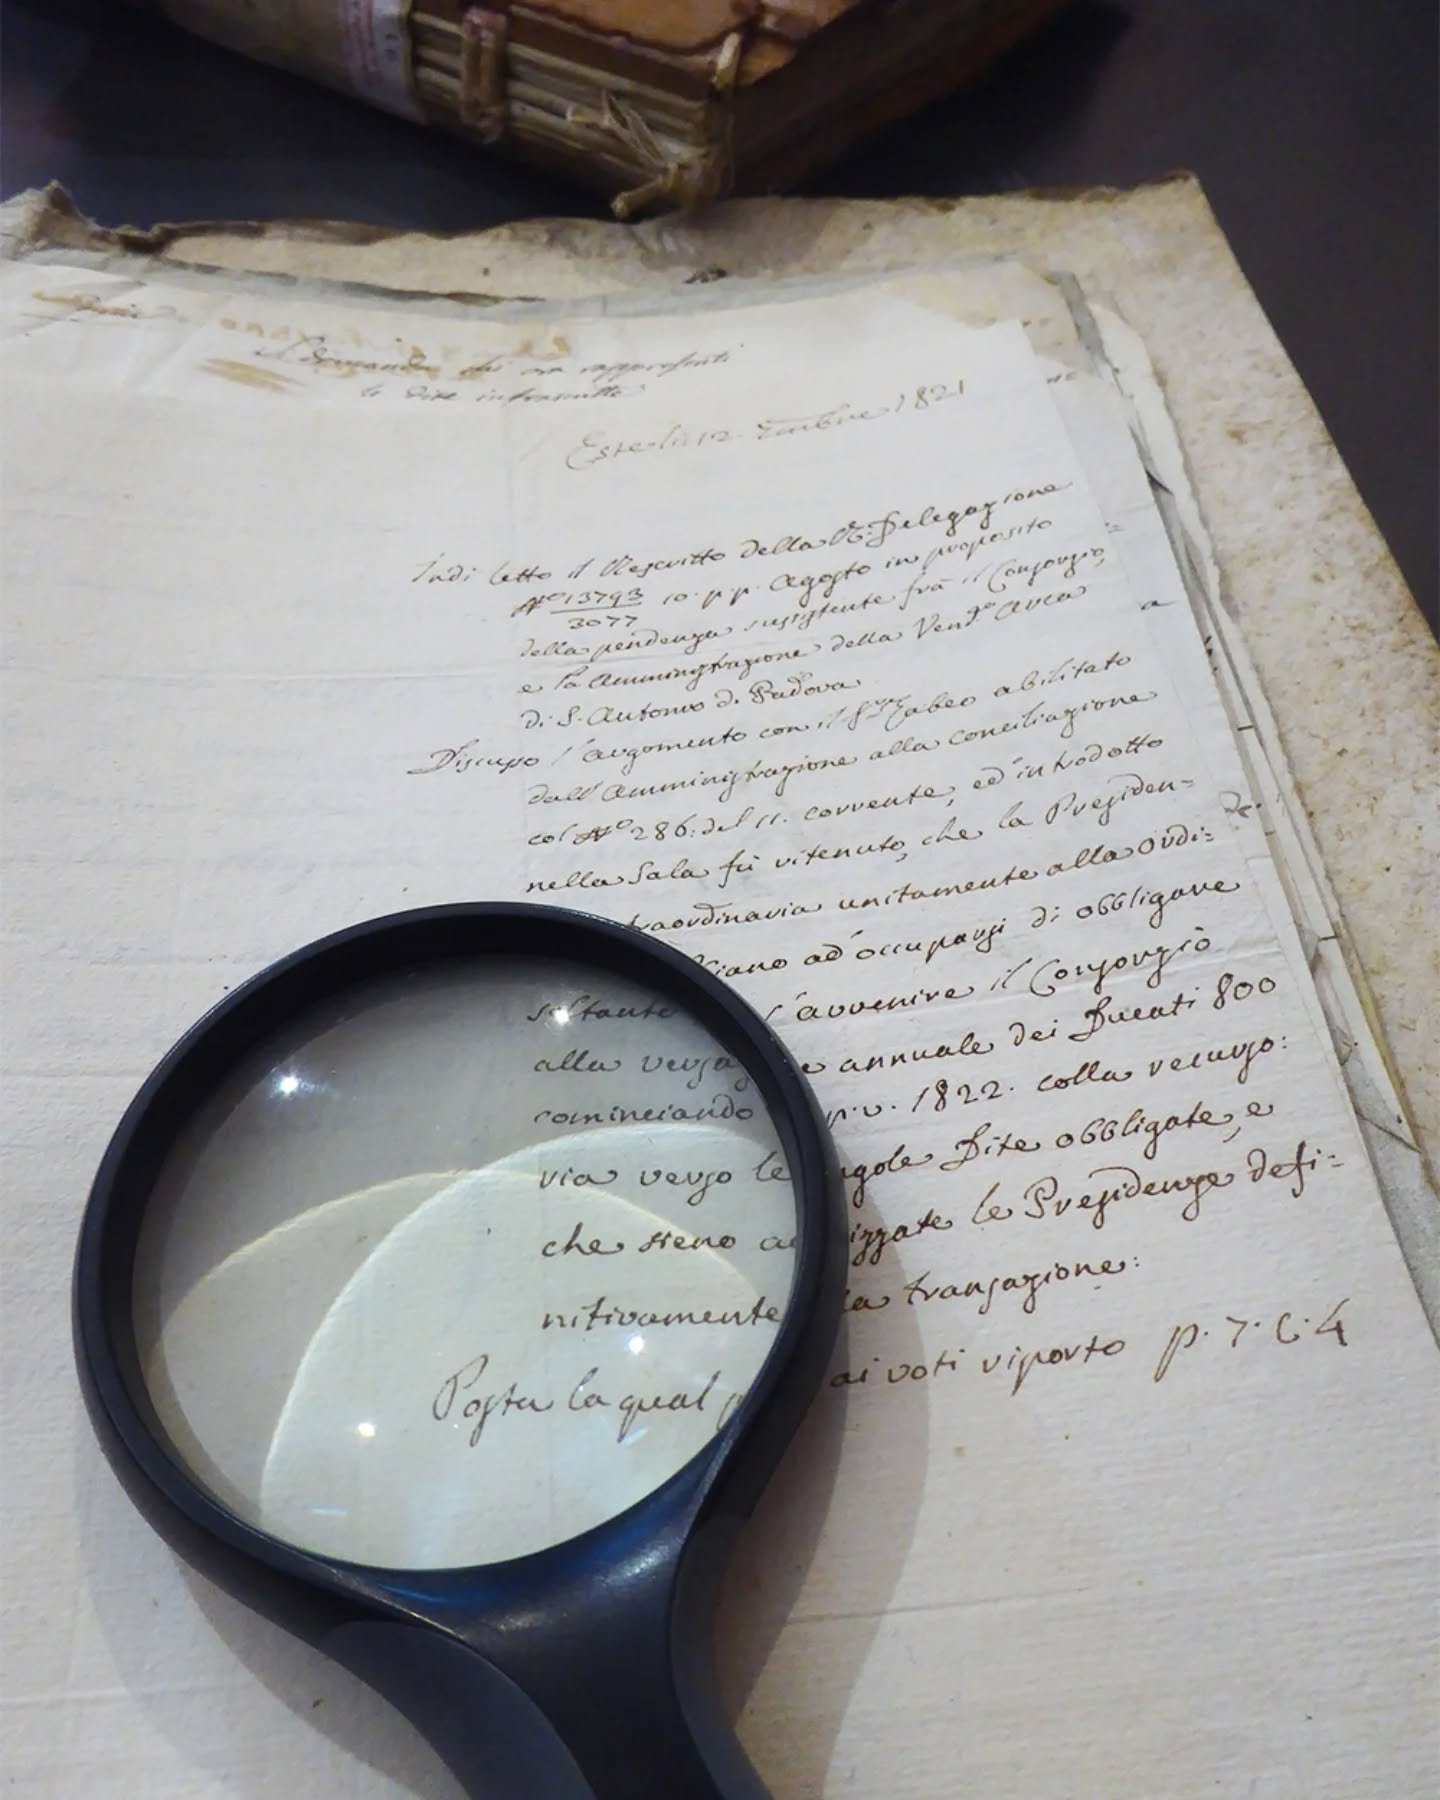 Este li 12 1821
Indi letto il Rescritto della R: Delegazione
N° 13793/3077 10. p.p. Agosto in proposito
della pendenza sussistente frà il Consorzio,
e la Amministrazione della Vend.ª Arca
di S. Antonio di Padova
Discusso l'argomento con il Zabeo abilitato
dall'Amministrazione alla conciliazione
col N° 286: del 11. corrente, ed introdotto
nella Sala fù ritenuto, che la Presiden=
traordinaria unitamente alla ordi=
ad occuparsi di obbligare
soltanto l'avvenire il Consorzio
alla annuale dei Ducati 800
cominciando p.v. 1822. colla
via verso le Dite obbligate, e
che sieno le Presidenze defi=
nitivamente la transazione:
Posta la qual ai voti riporto p. 7. C. 4